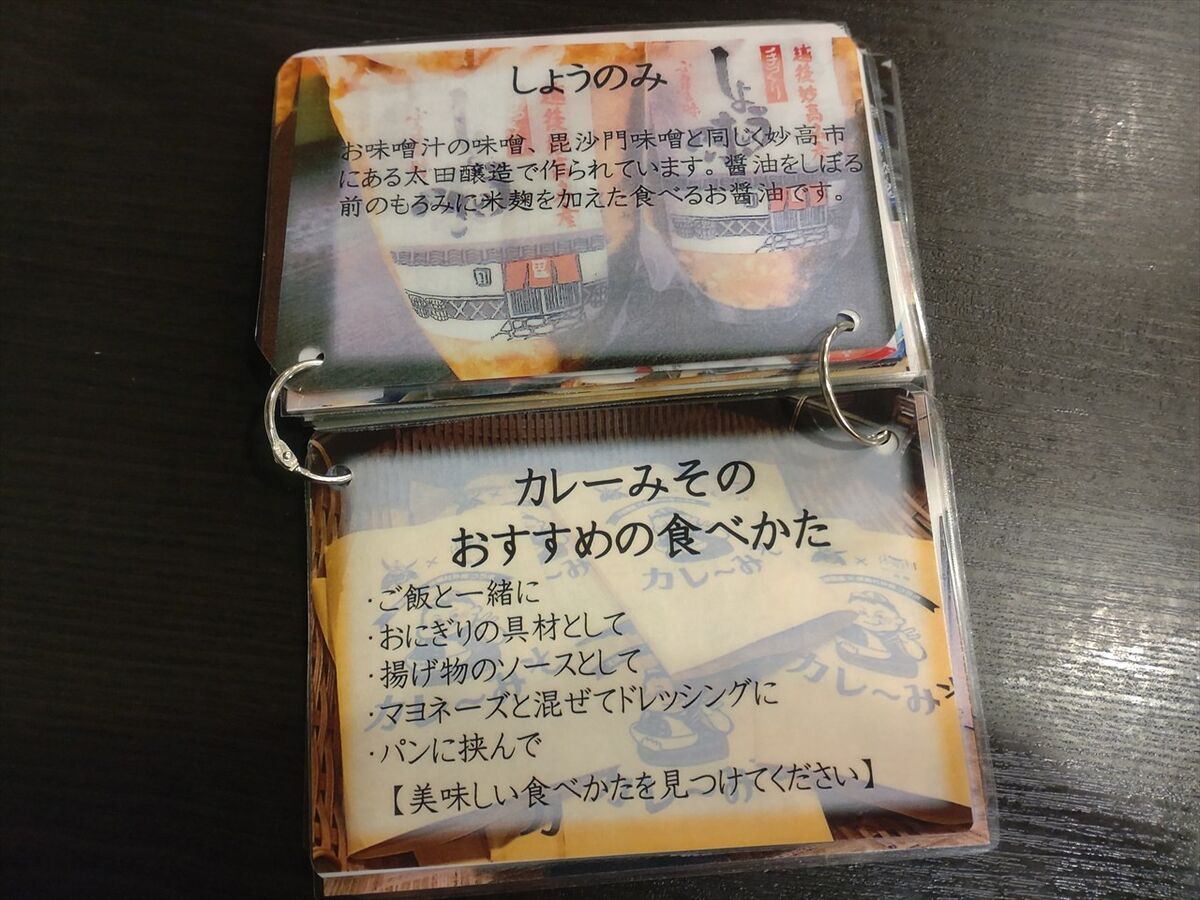 しょうのみ
お味噌汁の味噌、毘沙門味噌と同じく妙高市
にある太田醸造で作られています。醤油をしぼる
前のもろみに米麹を加えた食べるお醤油です。
手づくり
越後妙高
しょう
カレーみその
おすすめの食べかた
・ご飯と一緒に
・おにぎりの具材として
・揚げ物のソースとして
・マヨネーズと混ぜてドレッシングに
・パンに挟んで
【美味しい食べかたを見つけてください】
カレ〜み
カレ〜み